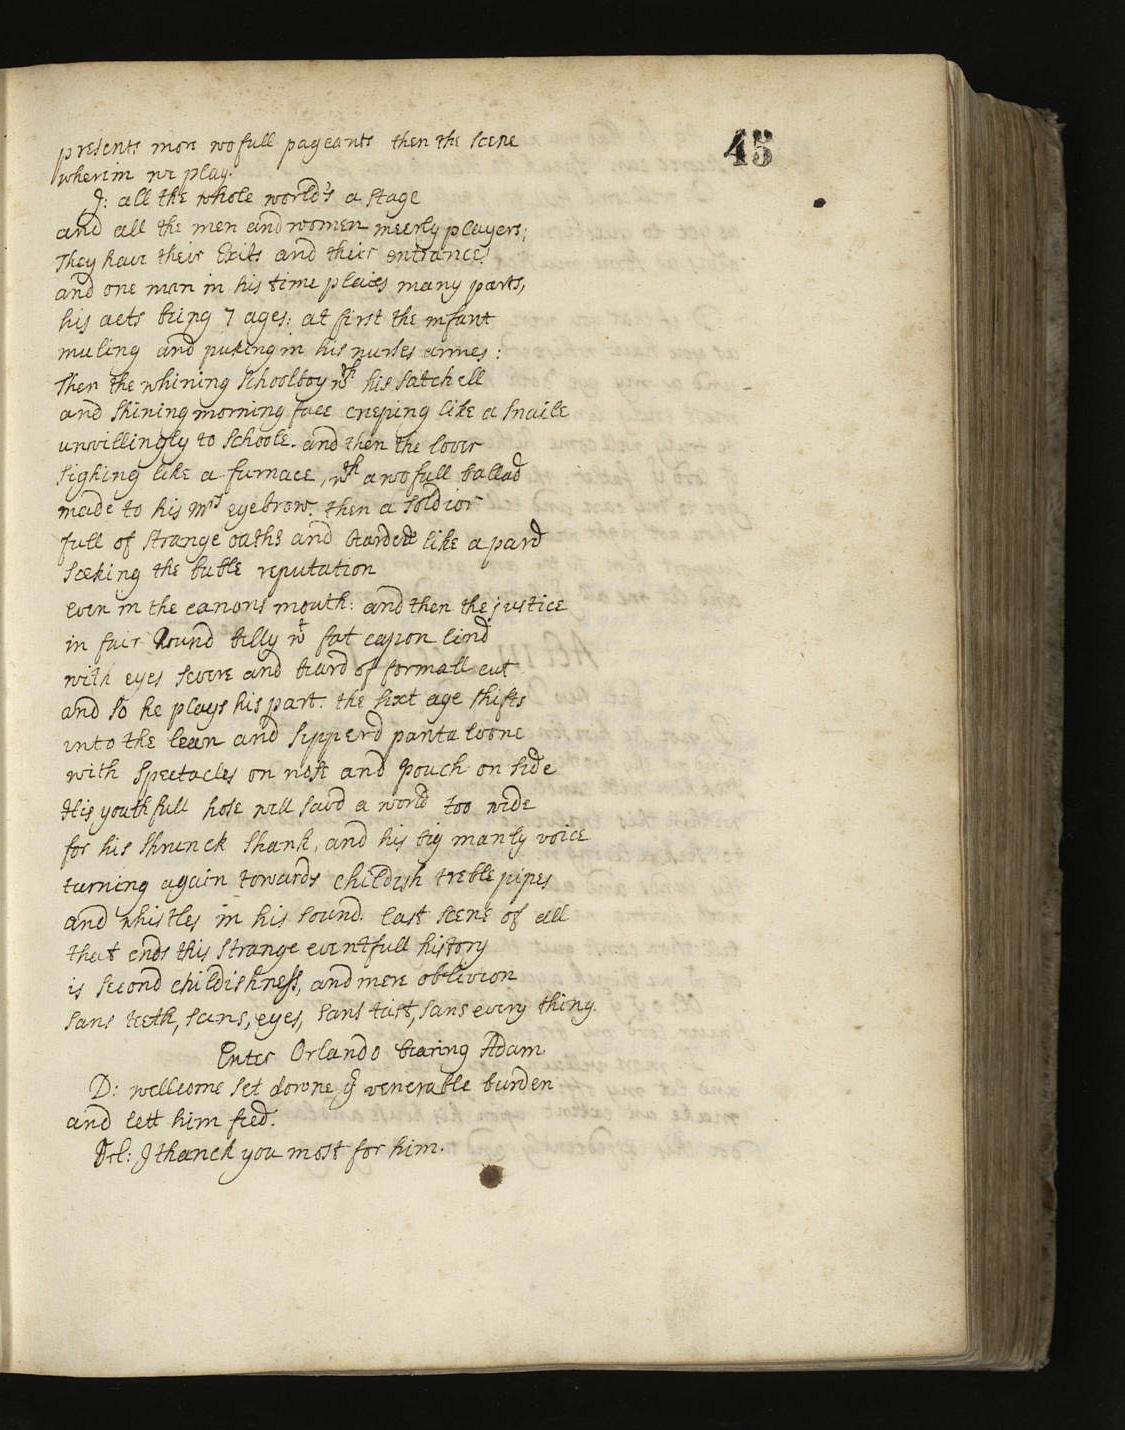 45
presents more wofull pageants then the scene
wherin we play.
J: all the whole world's a stage
and all the men and women meerly players;
They have their Exits and their entrance!
and one man in his time plaies many parts,
his acts being 7 ages: at first the infant
muling and puking in his nurses armes:
Then the whining schoolboy wth his satchell
and shining morning face creeping like a snaile
unwillingly to schoole. and then the lover
sighing like a furnace, wth a wofull ballad
made to his mrs eyebrow. then a soldior
full of strange oaths and bearded like a pard
seeking the buble reputation
even in the canons mouth: and then the justice
in fair Round belly wt fat capon lind
with eyes severe and beard of formall cut
and so he plays his part. the sixt age shifts
into the lean and slipperd pantaloone
with spectacles on nose and pouch on side
His youthfull hose well savd a world too wide
for his shrunck shank, and his big manly voice
turning again towards childish treble pipes
and whistles in his sound. last scene of all
that ends this strange eventfull history
is second childishness, and mere oblivion
sans teeth, sans, eyes, sans tast, sans every thing.
Enter Orlando bearing Adam
D: wellcome set downe yr venerable burden
and lett him feed.
Orl: J thanck you most for him.